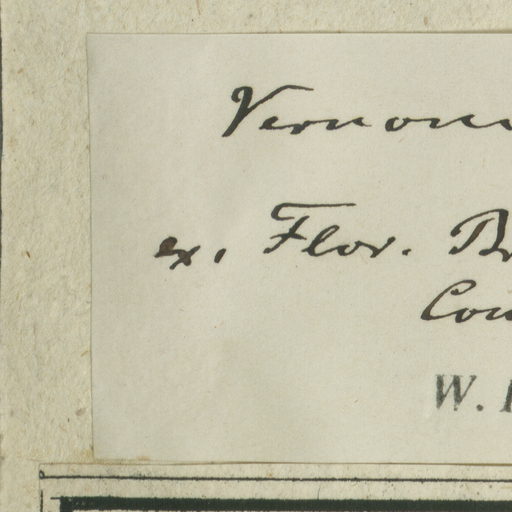 Vernon
ex, Flor. Br
Con
W.